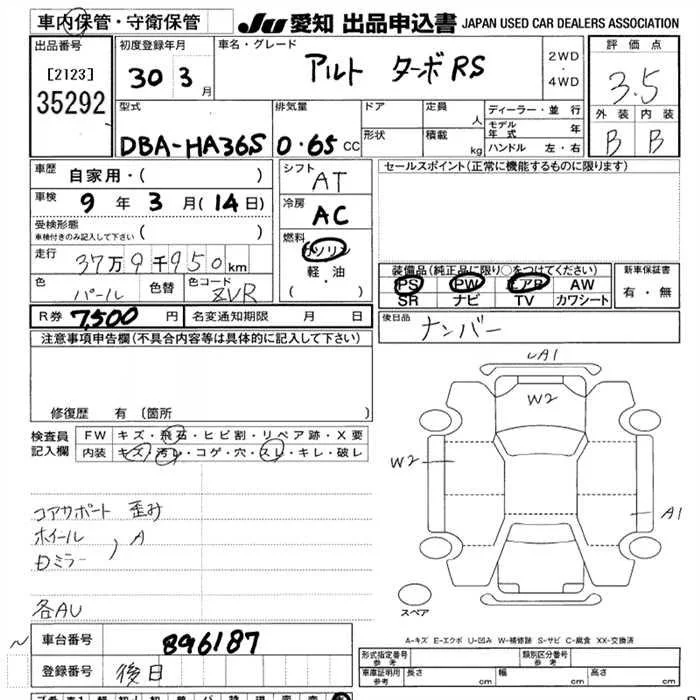 車内保管・守衛保管
JU 愛知 出品申込書 JAPAN USED CAR DEALERS ASSOCIATION
出品番号
[2123]
35292
初度登録年月
30 3 月
車名・グレード
アルト ターボRS
2WD
・
4WD
評価点
3.5
外装 内装
B B
型式
DBA-HA36S
排気量
0.65 CC
ドア
形状
定員 人
積載 kg
ディーラー・並行
モデル年式 年
ハンドル 左・右
車歴 自家用・( )
車検 9 年 3 月(14日)
受検形態
車検付きのみ記入して下さい ( )
走行 37万9千950km
色 パール 色替 色コード ZVR
シフト
AT
冷房
AC
燃料
ガソリン
軽・油
( ・ )
セールスポイント(正常に機能するものに限ります)
装備品(純正品に限り○をつけてください)
PS PW エアB AW
SR ナビ TV カワシート
新車保証書
有・無
R券 7,500 円 名変通知期限 月 日
後日品
ナンバー
注意事項申告欄(不具合内容等は具体的に記入して下さい)
修復歴 有(箇所 )
検査員記入欄
FW キズ・飛石・ヒビ割・リペア跡・X要
内装 キズ・汚レ・コゲ・穴・スレ・キレ・破レ
コアサポート 歪み
ホイール
ドミラー ) A
各AU
UA1
W2
W2
A1
スペア
A-キズ E-エクボ U-凹み W-補修跡 S-サビ C-腐食 XX-交換済
車台番号 896187
登録番号 後日
形式指定番号 参考
類別区分番号 参考
車庫証明用 参考 長さ cm 幅 cm 高さ cm